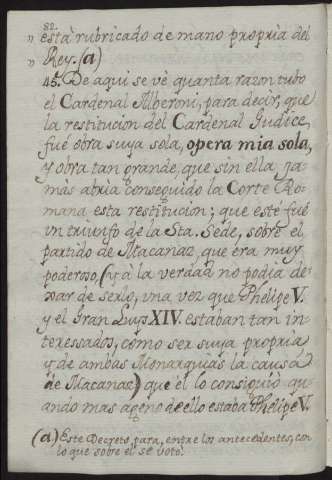 82.
" està rubricado de mano propria del
" Rey. (a)
45. De aqui se vè quanta razon tubo
el Cardenal Alberoni, para decir, que
la restitucion del Cardenal Iudice,
fuè obra suya sola, opera mia sola,
y obra tan grande, que sin ella ja-
màs abria conseguido la Corte Ro-
mana esta restitucion; que estè fuè
un triunfo de la Sta. Sede, sobre el
partido de Macanaz, que era muy
poderoso, (y à la verdad no podia de-
xar de serlo, una vez que Phelipe V.
y el Gran Luys XIV. estaban tan in-
teressados, como ser suya propria
y de ambas Monarquias la causa
de Macanaz) que èl lo consiguiò qu-
ando mas ageno de ello estaba Phelipe V.
(a) Este Decreto para, entre los antecedentes, con
lo que sobre èl se votò.